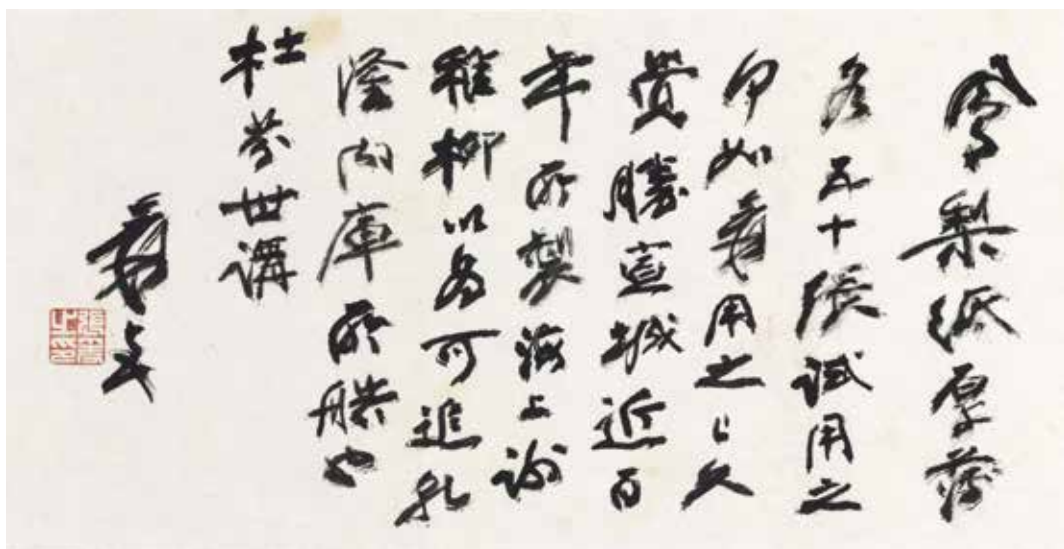 鳳梨紙厚薄
各五十張試用之
如爰用之已久
覺勝宣城近百
年所製海上謝
稚柳以為可追乾
隆內庫所賸也
杜芬世講
爰
張爰之印